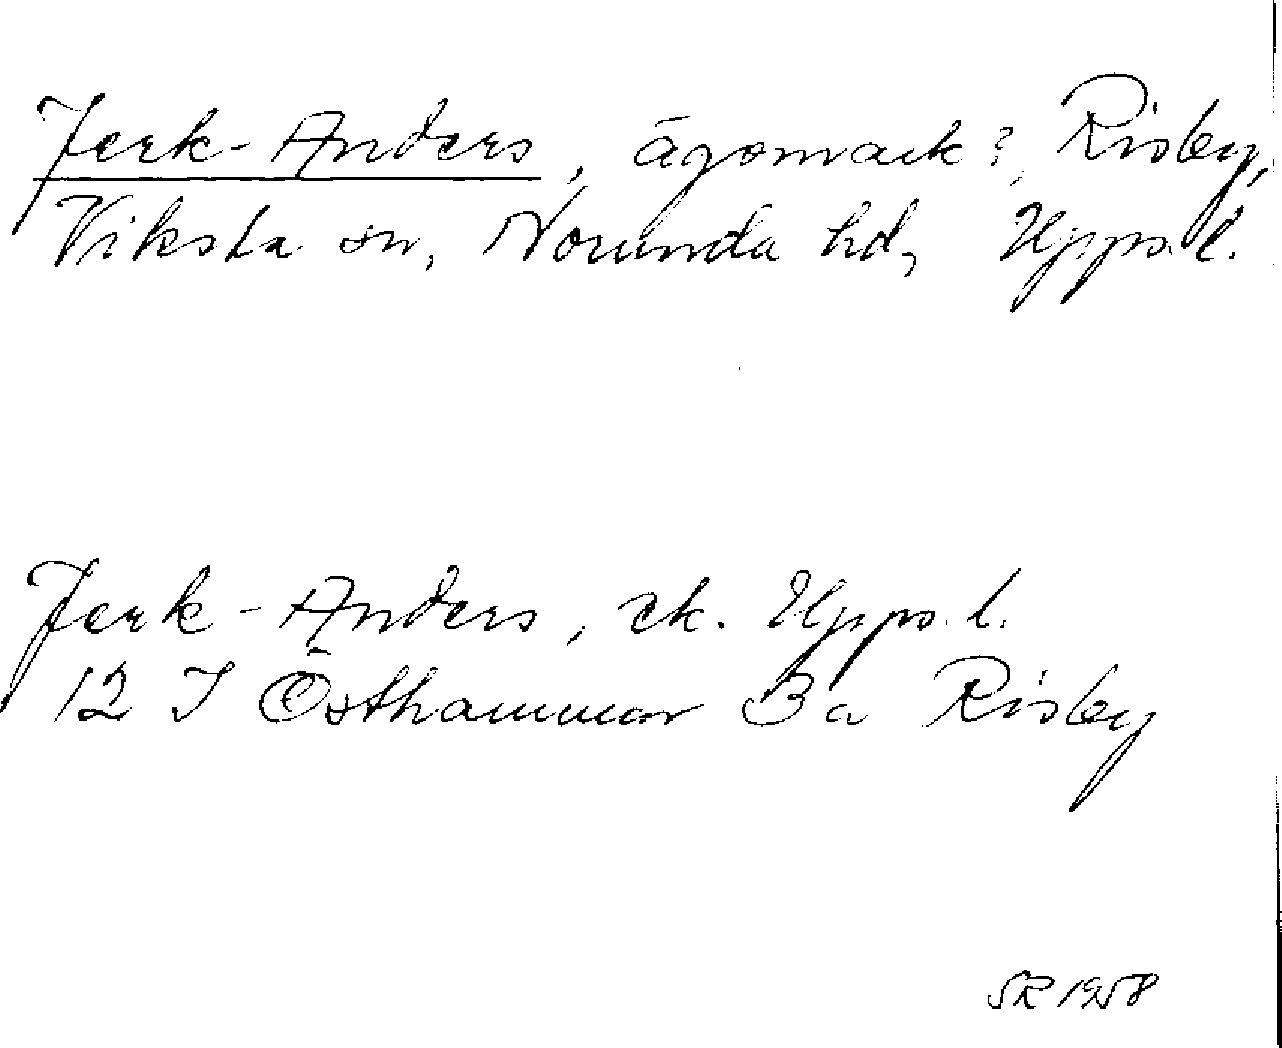 Jerk-Anders, ägomark?, Risby,
Viksta sn, Norunda hd, Upps. l.
Jerk-Anders, ek. Upps. l.
12 I Östhammar Ba Risby
SR 1958